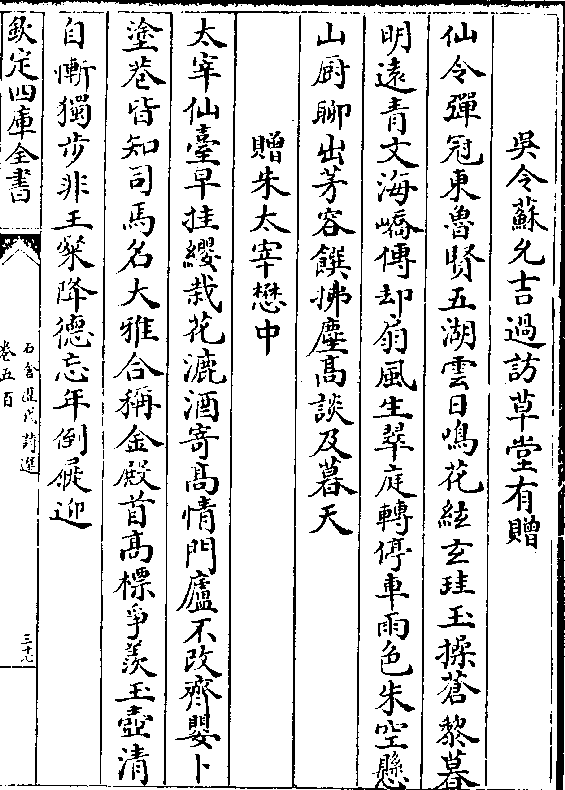 吳令蘇允吉過訪草堂有贈
仙令彈冠東魯賢五湖雲日鳴花絃玄珪玉操蒼黎暮
明遠青文海嶠傳却扇風生翠庭轉停車雨色朱空懸
山廚聊出芳容饌拂塵髙談及暮天
贈朱太宰懋中
太宰仙臺早挂纓栽花漉酒寄髙情門廬不改齊嬰卜
塗巷皆知司馬名大雅合稱金殿首髙標爭羨玉壺清
自慚獨步非王粲降德忘年倒屣迎
欽定四庫全書
石倉歴代詩選
卷五百
三十九